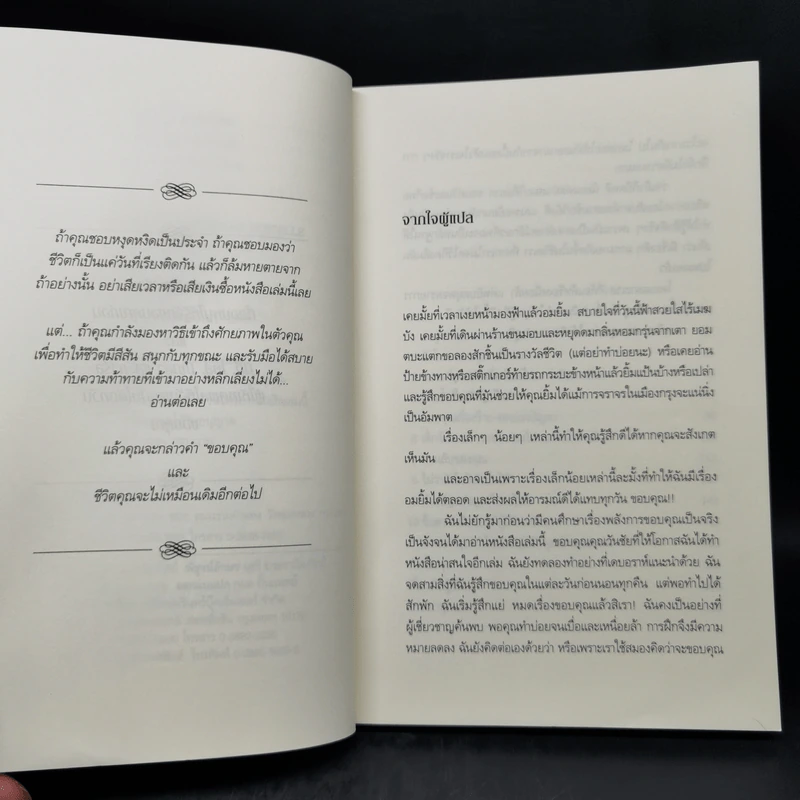 ถ้าคุณชอบหงุดหงิดเป็นประจำ ถ้าคุณชอบมองว่า
ชีวิตก็เป็นแค่วันที่เรียงติดกัน แล้วก็ล้มหายตายจาก
ถ้าอย่างนั้น อย่าเสียเวลาหรือเสียเงินซื้อหนังสือเล่มนี้เลย
แต่... ถ้าคุณกำลังมองหาวิธีเข้าถึงศักยภาพในตัวคุณ
เพื่อทำให้ชีวิตมีสีสัน สนุกกับทุกขณะ และรับมือได้สบาย
กับความท้าทายที่เข้ามาอย่างหลีกเลี่ยงไม่ได้...
อ่านต่อเลย
แล้วคุณจะกล่าวคำ “ขอบคุณ”
และ
ชีวิตคุณจะไม่เหมือนเดิมอีกต่อไป
จากใจผู้แปล
เคยมั้ยที่เวลาเงยหน้ามองฟ้าแล้วอมยิ้ม สบายใจที่วันนี้ฟ้าสวยใสไร้เมฆ
บัง เคยมั้ยที่เดินผ่านร้านขนมอบและหยุดดมกลิ่นหอมกรุ่นจากเตา ยอม
ตบะแตกขอลองสักชิ้นเป็นรางวัลชีวิต (แต่อย่าทำบ่อยนะ) หรือเคยอ่าน
ป้ายข้างทางหรือสติ๊กเกอร์ท้ายรถกระบะข้างหน้าแล้วยิ้มแป้นบ้างหรือเปล่า
และรู้สึกขอบคุณที่มันช่วยให้คุณยิ้มได้แม้การจราจรในเมืองกรุงจะแน่นิ่ง
เป็นอัมพาต
เรื่องเล็กๆ น้อยๆ เหล่านี้ทำให้คุณรู้สึกดีได้หากคุณจะสังเกต
เห็นมัน
และอาจเป็นเพราะเรื่องเล็กน้อยเหล่านี้ละมั้งที่ทำให้ฉันมีเรื่อง
อมยิ้มได้ตลอด และส่งผลให้อารมณ์ดีได้แทบทุกวัน ขอบคุณ!!
ฉันไม่ยักรู้มาก่อนว่ามีคนศึกษาเรื่องพลังการขอบคุณเป็นจริง
เป็นจังจนได้มาอ่านหนังสือเล่มนี้ ขอบคุณคุณวันชัยที่ให้โอกาสฉันได้ทำ
หนังสือน่าสนใจอีกเล่ม ฉันยังทดลองทำอย่างที่เดบอราห์แนะนำด้วย ฉัน
จดสามสิ่งที่ฉันรู้สึกขอบคุณในแต่ละวันก่อนนอนทุกคืน แต่พอทำไปได้
สักพัก ฉันเริ่มรู้สึกแย่ หมดเรื่องขอบคุณแล้วสิเรา! ฉันคงเป็นอย่างที่
ผู้เชี่ยวชาญค้นพบ พอคุณทำบ่อยจนเบื่อและเหนื่อยล้า การฝึกจึงมีความ
หมายลดลง ฉันยังคิดต่อเองด้วยว่า หรือเพราะเราใช้สมองคิดว่าจะขอบคุณ